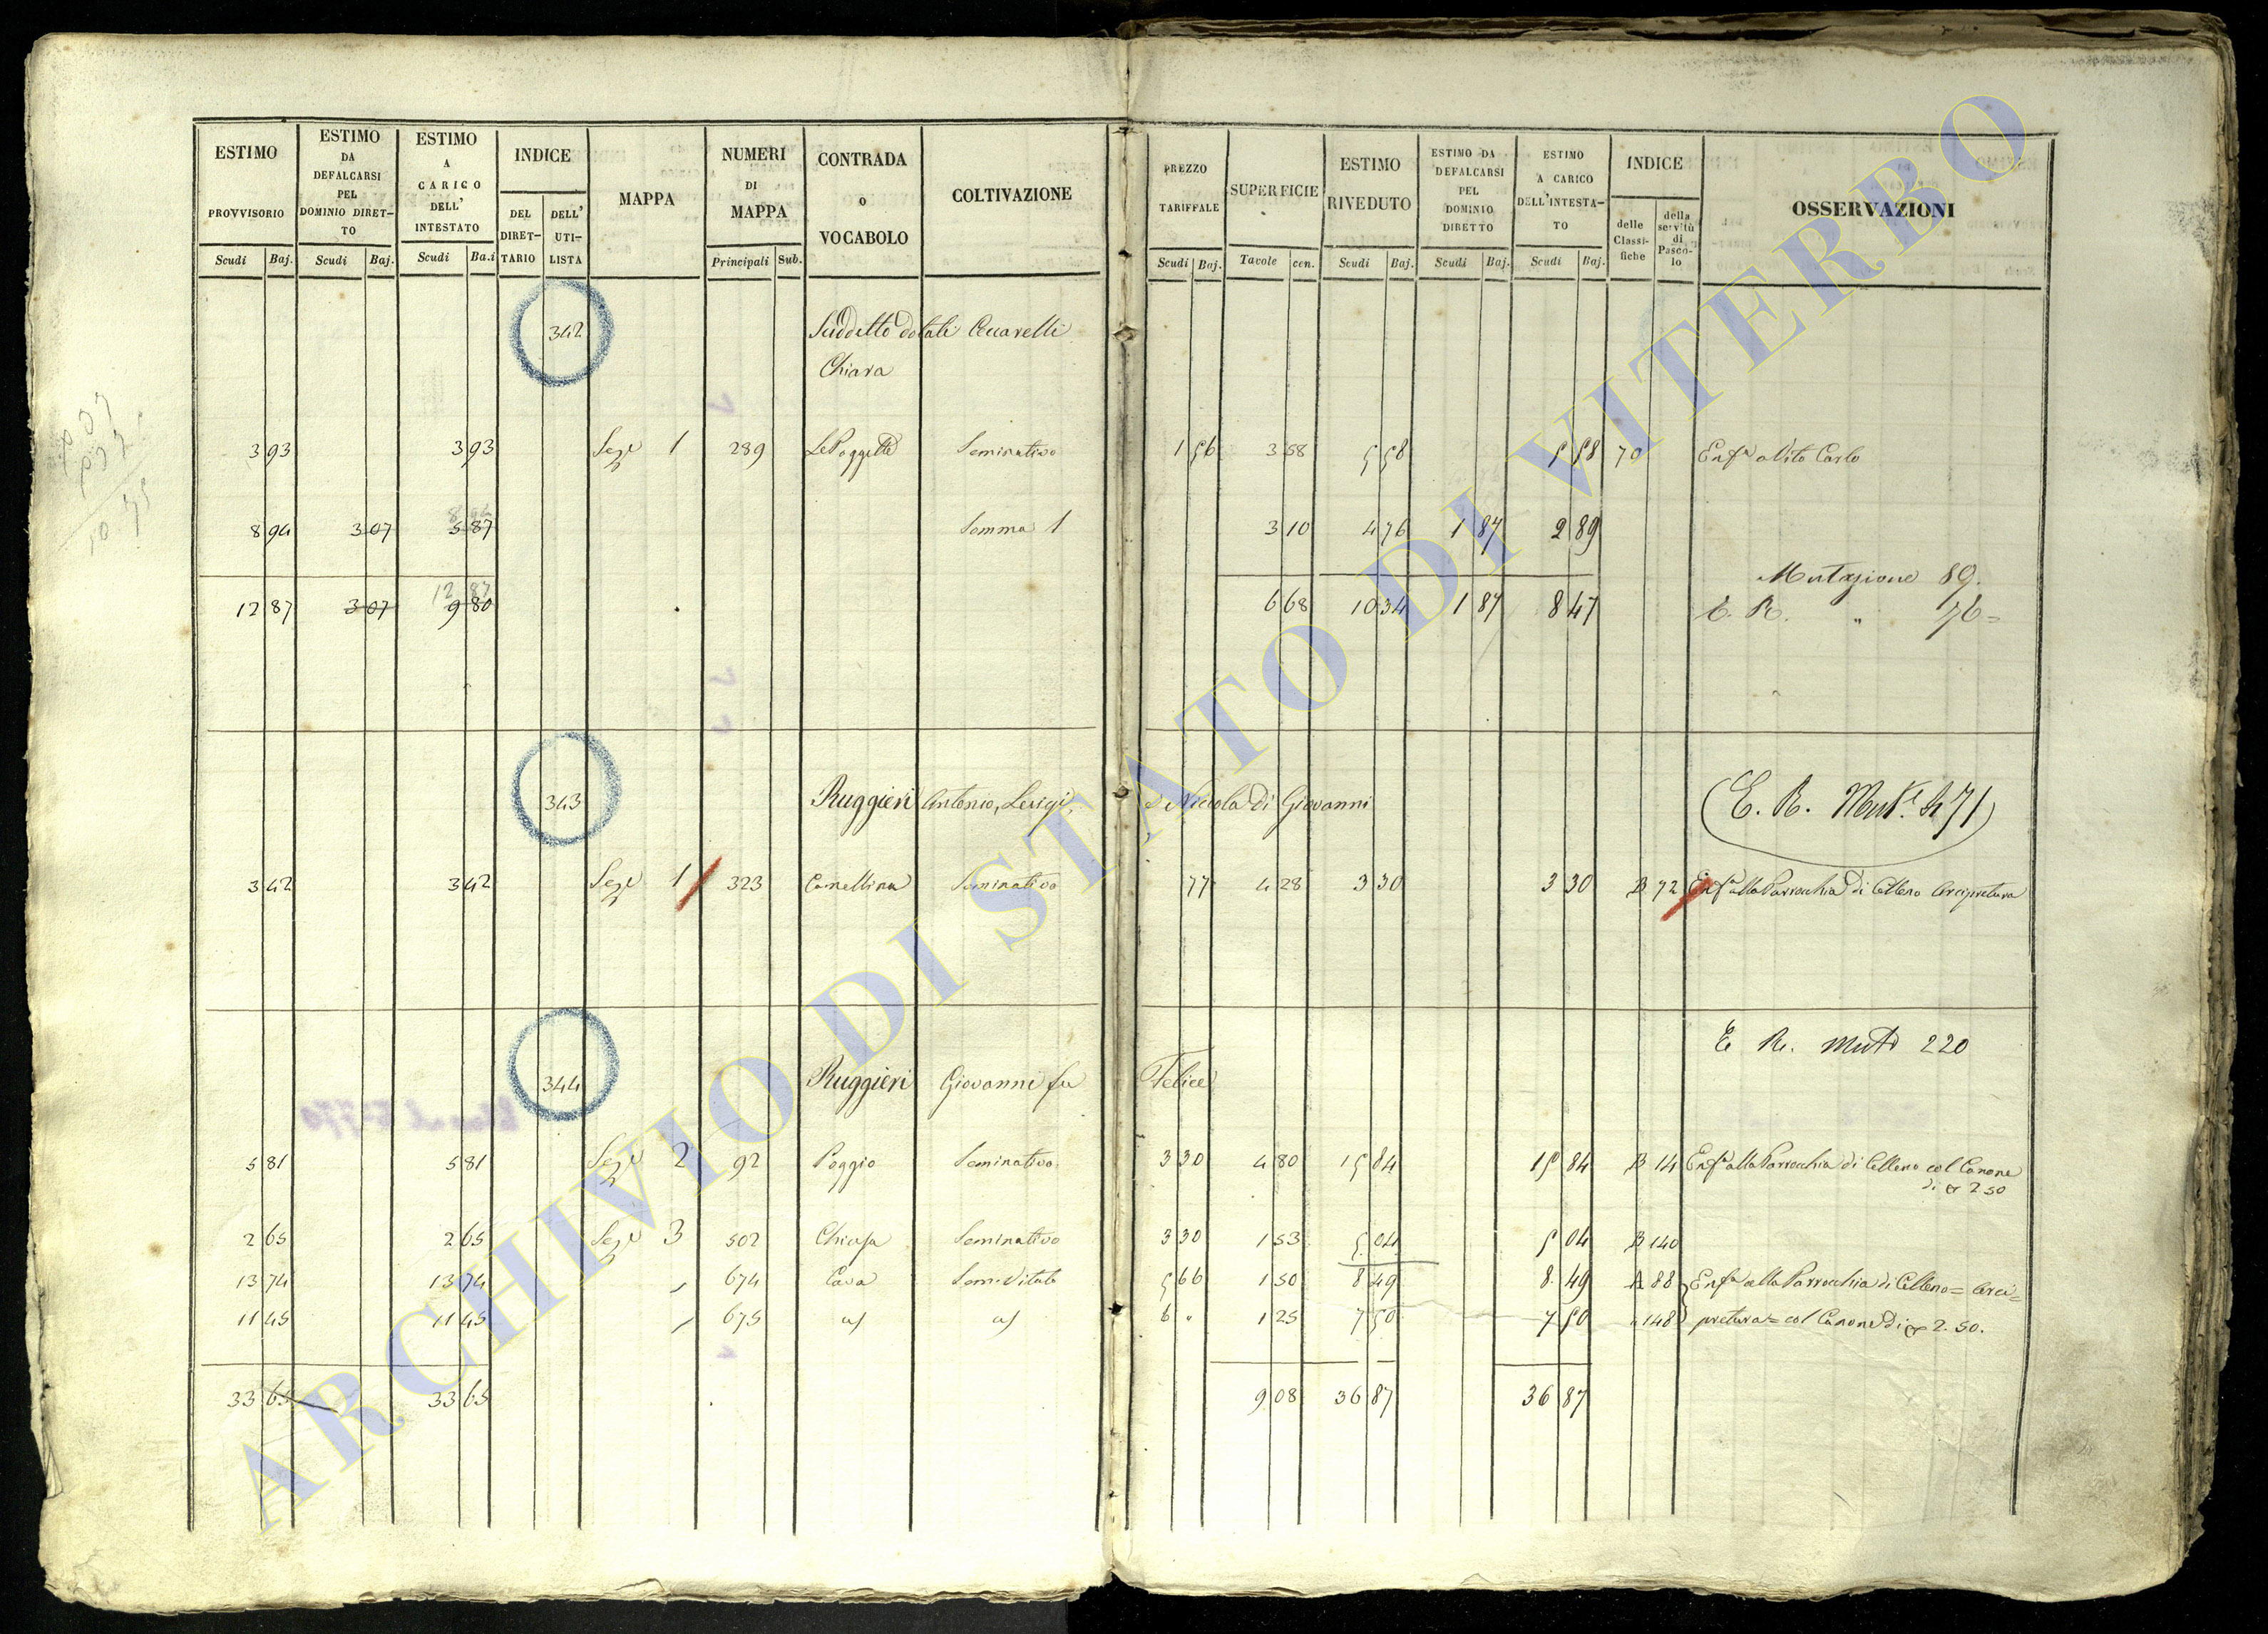 ESTIMO PROVVISORIO Scudi Baj.
ESTIMO DA DEFALCARSI PEL DOMINIO DIRET-TO Scudi Baj.
ESTIMO A CARICO DELL' INTESTATO Scudi Ba.i
INDICE DEL DIRET-TARIO DELL' UTI-LISTA
MAPPA
NUMERI DI MAPPA Principali Sub.
CONTRADA o VOCABOLO
COLTIVAZIONE
PREZZO TARIFFALE Scudi Baj.
SUPERFICIE Tavole cen.
ESTIMO RIVEDUTO Scudi Baj.
ESTIMO DA DEFALCARSI PEL DOMINIO DIRETTO Scudi Baj.
ESTIMO A CARICO DELL'INTESTA-TO Scudi Baj.
INDICE delle Classi-fiche della servitù di Pasco-lo
OSSERVAZIONI
342 Suddetto dotali Ceccarelli
Chiara
3 93 3 93 Sez.e 1 289 Le Poggette Seminativo 1 56 3 58 5 58 5 58 70 Enf.a a Vito Carlo
8 94 3 07 5 87 Somma 1 3 10 4 76 1 87 2 89
Mutazione 89.
12 87
12 87 3 07 9 80 6 68 10 34 1 87 8 47 E. R. " 76=
343 Ruggieri Antonio, Luigi, e Niccola di Giovanni (E. R. Mut.e 471)
3 42 3 42 Sez.e 1 323 Camellina Seminativo 77 4 28 3 30 3 30 B 72 Enf.a alla Parrocchia di Celleno Arcipretura
E R. Mut. 220
344 Ruggieri Giovanni fu Felice
5 81 5 81 Sez.e 2 92 Poggio Seminativo 3 30 4 80 15 84 15 84 B 14 Enf.a alla Parrocchia di Celleno col Canone
di 2 50
2 65 2 65 Sez.e 3 502 Chiusa Seminativo 3 30 1 53 5 04 5 04 B 140
13 74 13 74 " 674 Cava Sem. Vitato 5 66 1 50 8 49 8 49 A 88 Enf.a alla Parrocchia di Celleno = Arci=
11 45 11 45 " 675 6 " 1 25 7 50 7 50 " 148 pretura = col Canone di 2. 50.
33 65 33 65 9 08 36 87 36 87
ARCHIVIO DI STATO DI VITERBO